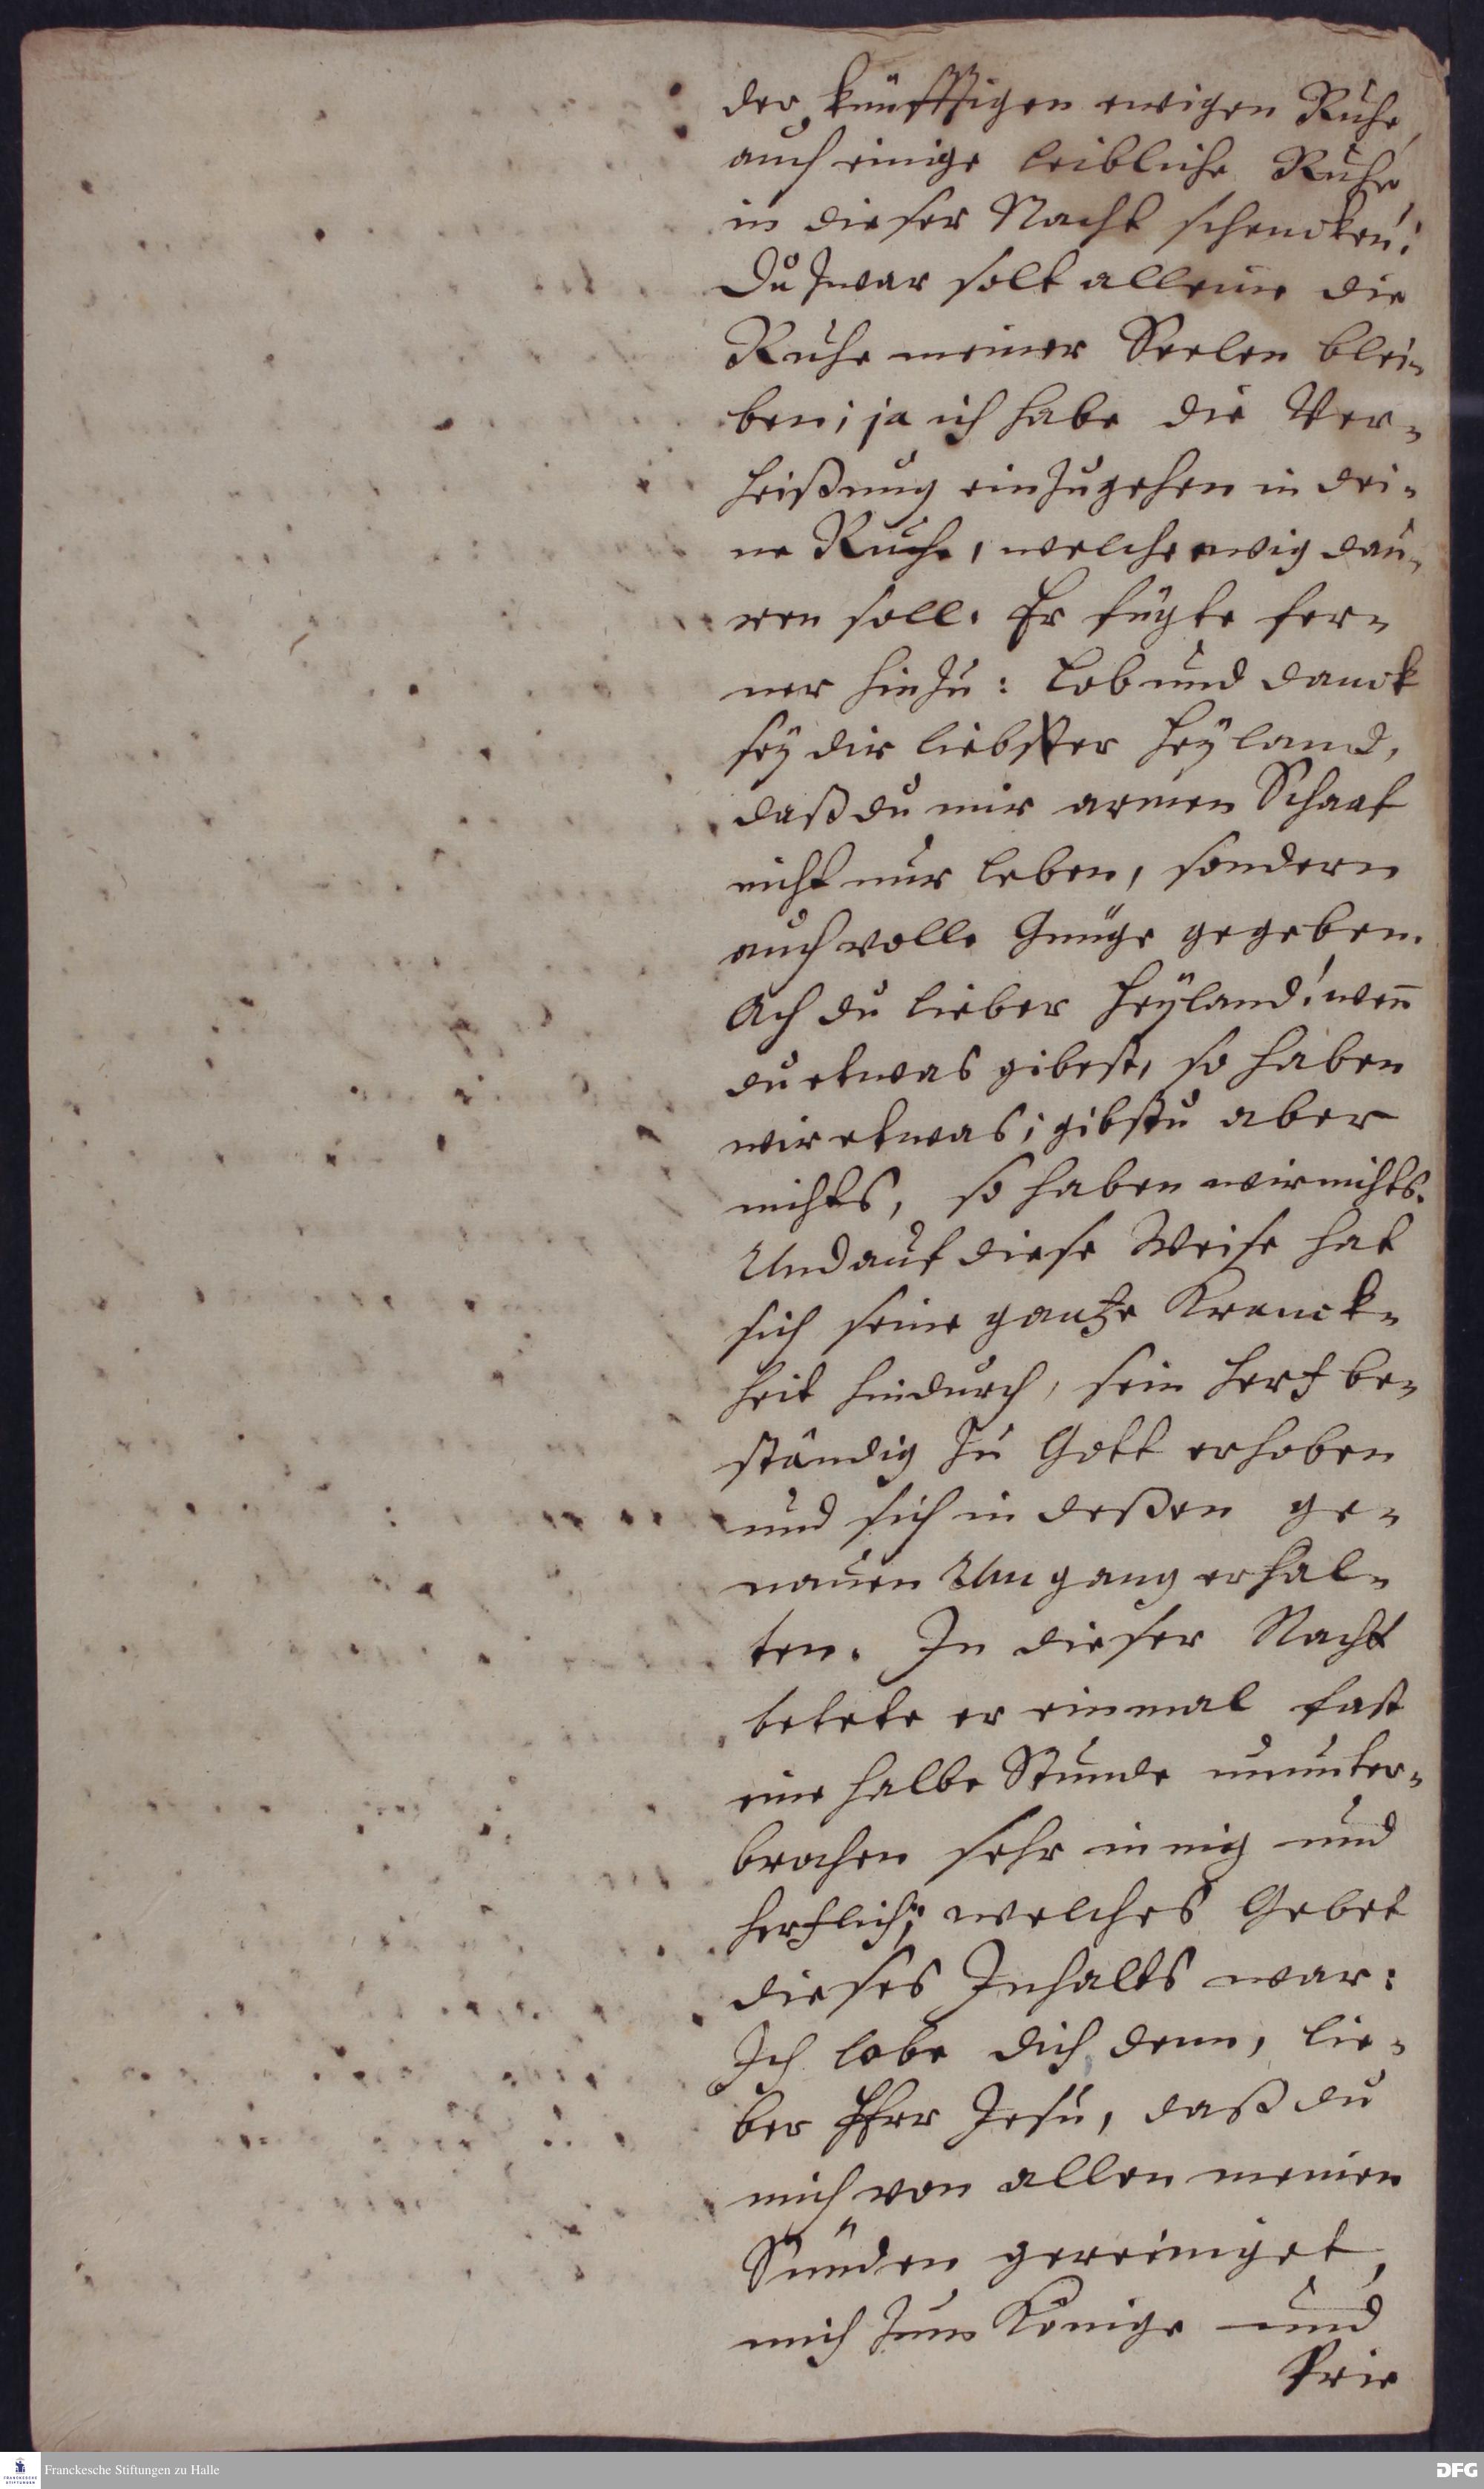 der künfftigen ewigen Ruhe,
auch einige leibliche Ruhe,
in dieser Nacht schencken!
Du zwar solt alleine die
Ruhe meiner Seelen blei-
ben; ja ich habe die Ver-
heißung einzugehen in dei-
ne Ruhe, welche ewig dau-
ren soll. Er fügte fer-
ner hinzu: Lob und danck
sey dir liebster Heyland,
daß du mir armen Schaaf
nicht nur leben, sondern
auch volle Gnüge gegeben.
Ach du lieber Heyland! weñ
du etwas gibest, so haben
wir etwas; gibstu aber
nichts, so haben wir nichts.
Und auf diese Weise hat
sich seine gantze Kranck-
heit hindurch, sein Hertz be-
ständig zu Gott erhoben
und sich in deßen ge-
nauen Umgang erhal-
ten. In dieser Nacht
betete er einmal fast
eine halbe Stunde ununter-
brochen sehr innig und
hertzlich; welches Gebet
dieses Inhalts war:
Ich lobe dich denn, lie-
ber Herr Jesu, daß du
mich von allen meinen
Sünden gereiniget,
mich zum Könige und
Prie
Franckesche Stiftungen zu Halle
DFG